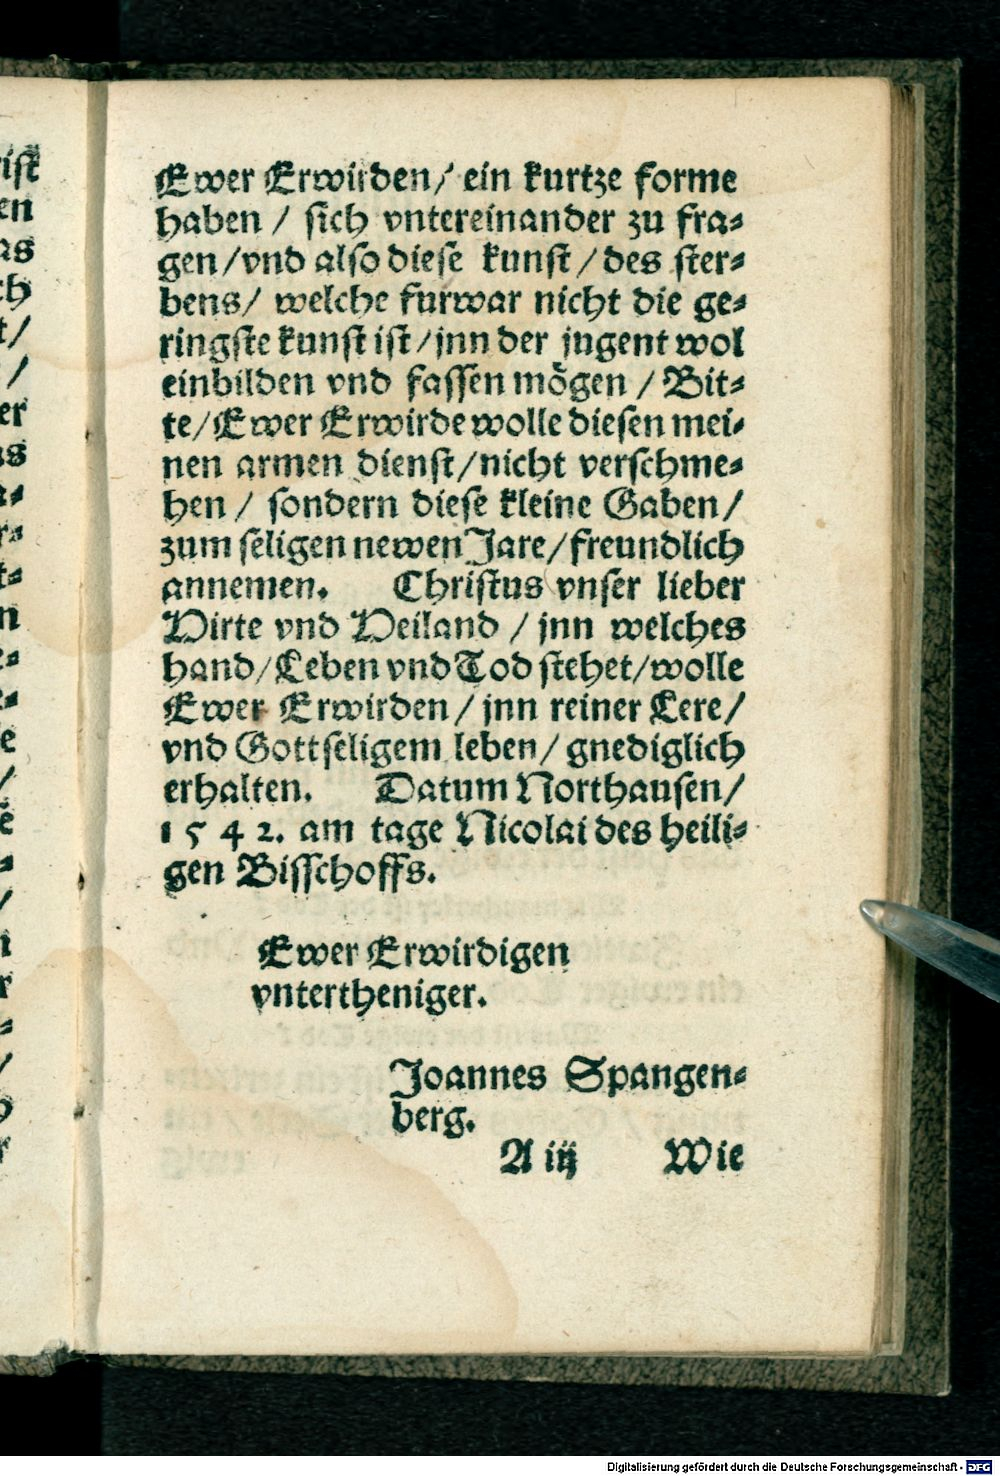 Ewer Erwirden/ ein kurtze forme
haben / sich vntereinander zu fra⸗
gen/vnd also diese kunst / des ster⸗
bens/ welche furwar nicht die ge⸗
ringste kunst ist/jnn der jugent wol
einbilden vnd fassen mögen / Bit⸗
te/Ewer Erwirde wolle diesen mei⸗
nen armen dienst/nicht verschme⸗
hen / sondern diese kleine Gaben/
zum seligen newen Jare/freundlich
annemen. Christus vnser lieber
Hirte vnd Heiland / jnn welches
hand/Leben vnd Tod stehet/wolle
Ewer Erwirden/ jnn reiner Lere/
vnd Gottseligem leben/ gnediglich
erhalten. Datum Northausen/
1 5 4 2. am tage Nicolai des heili⸗
gen Bisschoffs.
Ewer Erwirdigen
vntertheniger.
Joannes Spangen⸗
berg.
A iij Wie
Digitalisierung gefördert durch die Deutsche Forschungsgemeinschaft - DFG